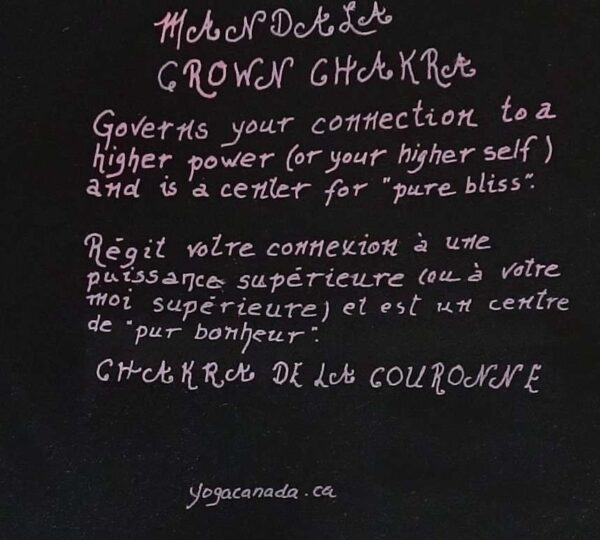 MANDALA
CROWN CHAKRA
Governs your connection to a
higher power (or your higher self)
and is a center for "pure bliss".
Régit votre connexion à une
puissance supérieure (ou à votre
moi supérieure) et est un centre
de "pur bonheur".
CHAKRA DE LA COURONNE
yogacanada.ca